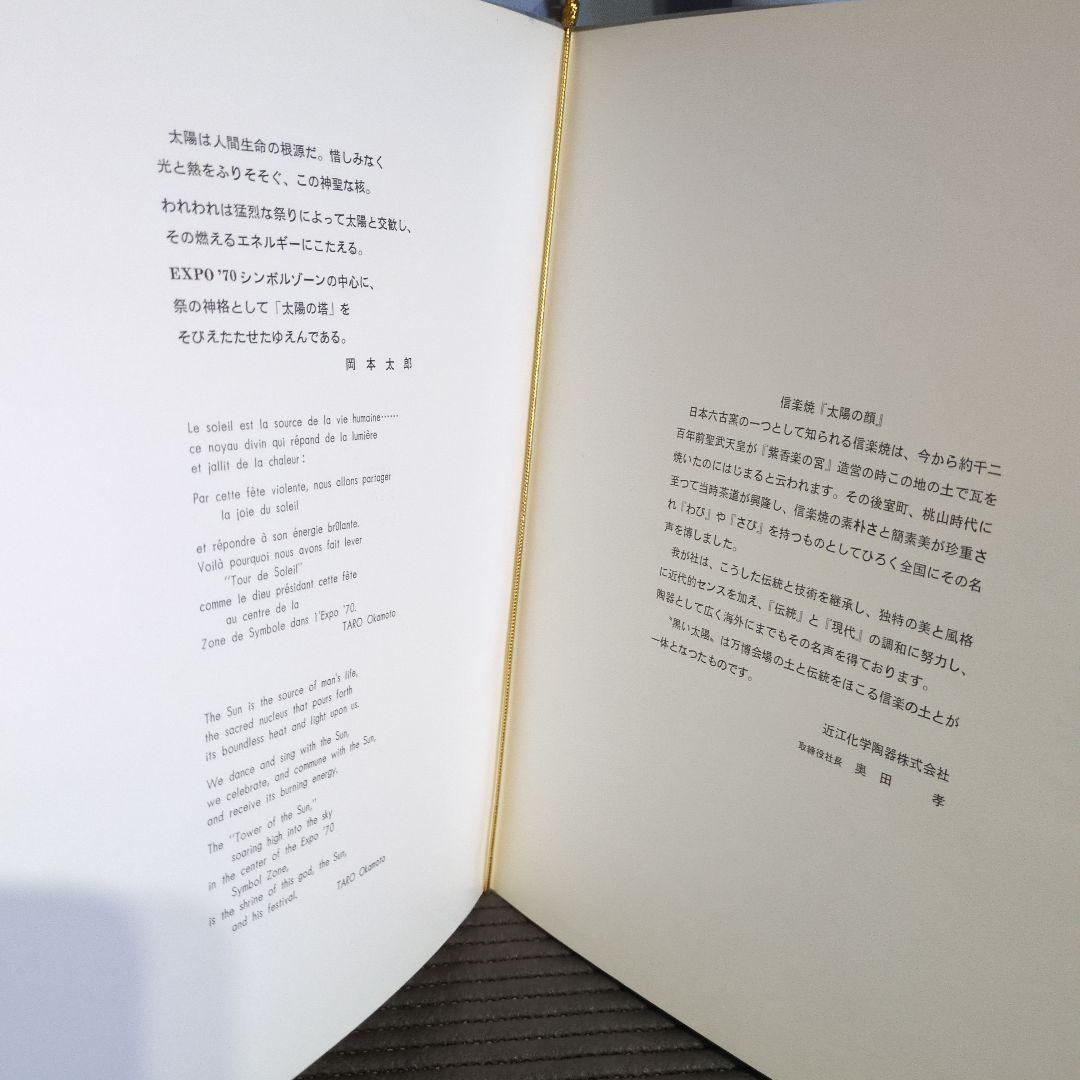 太陽は人間生命の根源だ。惜しみなく
光と熱をふりそそぐ、この神聖な核。
われわれは猛烈な祭りによって太陽と交歓し、
その燃えるエネルギーにこたえる。
EXPO '70シンボルゾーンの中心に、
祭の神格として「太陽の塔」を
そびえたたせたゆえんである。
岡本太郎
Le soleil est la source de la vie humaine……
ce noyau divin qui répand de la lumière
et jallit de la chaleur:
Par cette fête violente, nous allons partager
la joie du soleil
et répondre à son énergie brûlante.
Voilà pourquoi nous avons fait lever
"Tour de Soleil"
comme le dieu présidant cette fête
au centre de la
Zone de Symbole dans l'Expo '70.
TARO Okamoto
The Sun is the source of man's life,
the sacred nucleus that pours forth
its boundless heat and light upon us.
We dance and sing with the Sun,
we celebrate, and commune with the Sun,
and receive its burning energy.
The "Tower of the Sun,"
soaring high into the sky
in the center of the Expo '70
Symbol Zone,
is the shrine of this god, the Sun,
and his festival.
TARO Okamoto
信楽焼『太陽の顔』
日本六古窯の一つとして知られる信楽焼は、今から約千二
百年前聖武天皇が『紫香楽の宮』造営の時この地の土で瓦を
焼いたのにはじまると云われます。その後室町、桃山時代に
至つて当時茶道が興隆し、信楽焼の素朴さと簡素美が珍重さ
れ『わび』や『さび』を持つものとしてひろく全国にその名
声を博しました。
我が社は、こうした伝統と技術を継承し、独特の美と風格
に近代的センスを加え、『伝統』と『現代』の調和に努力し、
陶器として広く海外にまでもその名声を得ております。
〝黒い太陽〟は万博会場の土と伝統をほこる信楽の土とが
一体となつたものです。
近江化学陶器株式会社
取締役社長 奥田 孝